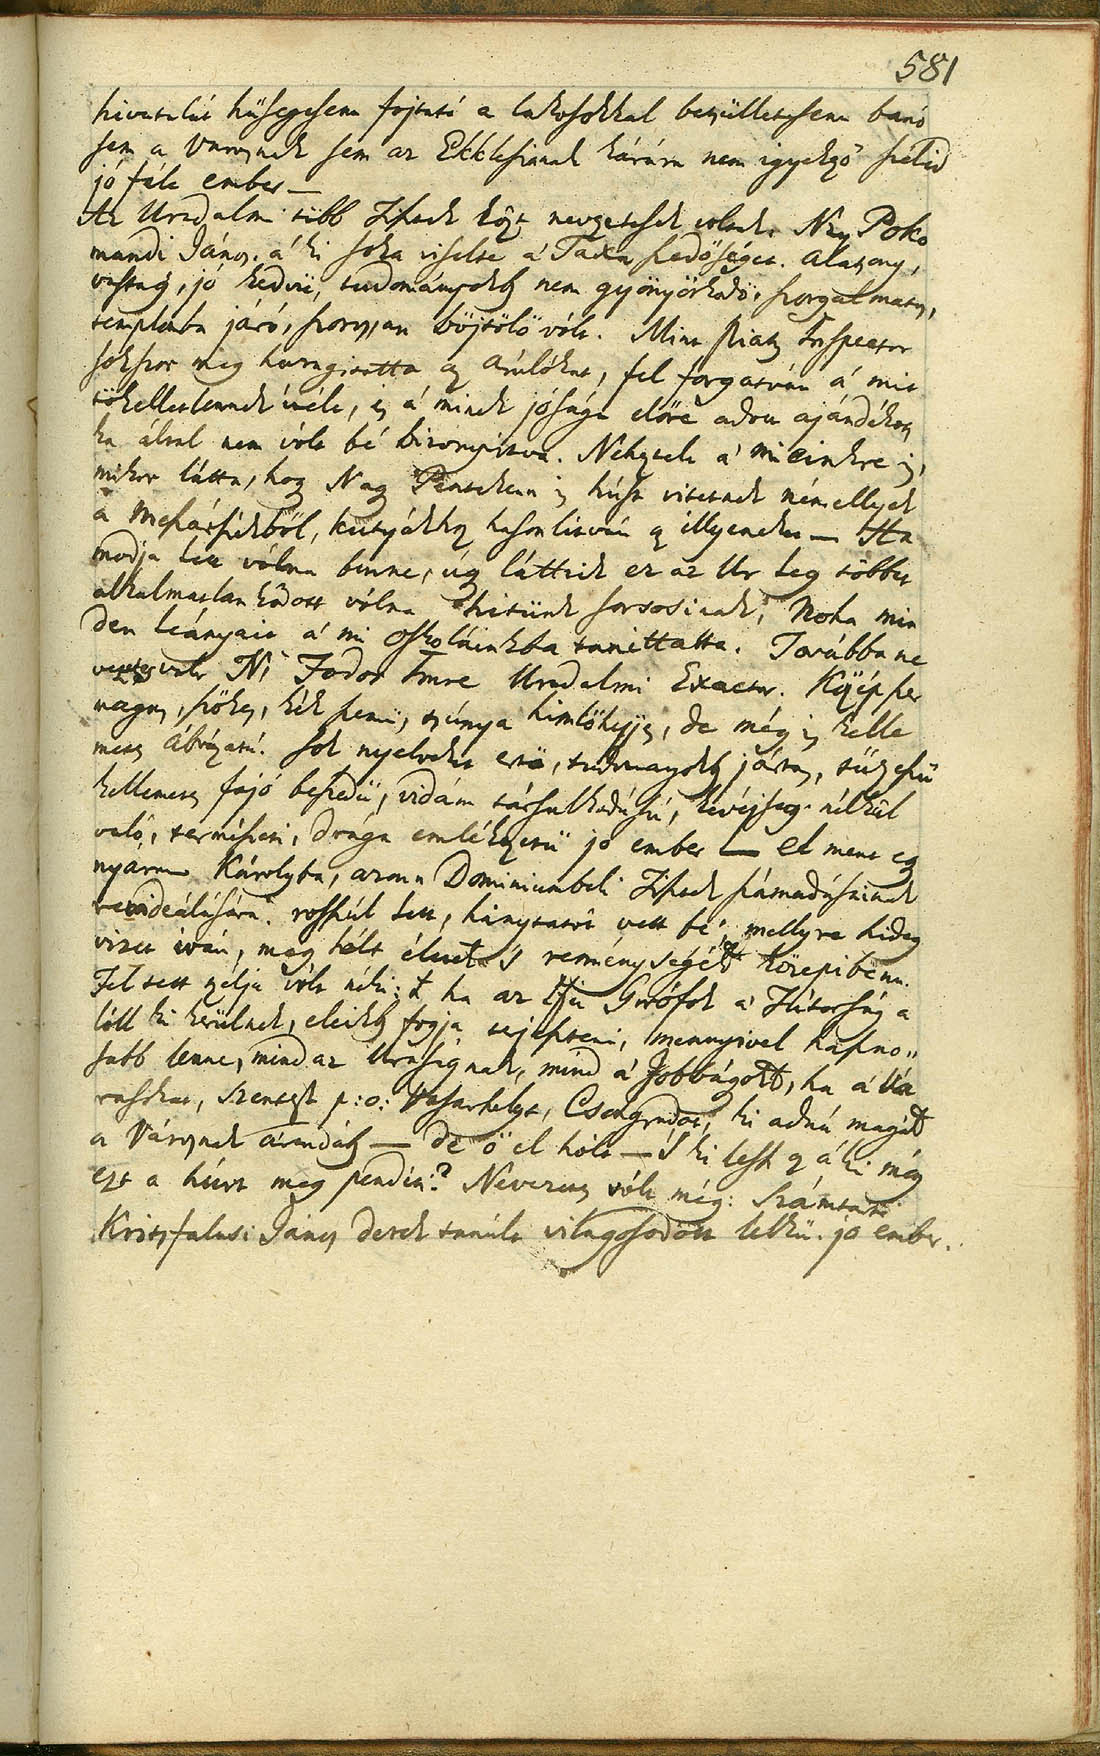 581
hivatalát hűségesenn folytató a lakosokkal betsülletessenn bánó
sem a Városnak sem az Ekklesiának kárára nem igyekező szelid
jó féle ember —
Az Uradalmi több Tisztek közt nevezetesek voltak. Ngy Poko
mándi János. a' ki soká viselte a' Taxa szedőséget. alatsony,
vastag, jó kedvű, tudományokb nem gyönyörködő, szorgalmatos,
templomba járó, szorossan bőjtölő vólt. Mint Piatz Inspector
sokszor meg haragította az árúlókat, fel forgatván a' mit
tökélletlennek ítélt, és a' minek jósága előre adott ajándékotska
ka által nem vólt bé bizonyítva. Nehezelt a' mieinkre is,
mikor látta, hogy Nagy Pénteken is húst visznek némellyek
a Mészárszékből, kutyákhoz hasonlítván az illyeneket — Ha
modja lett vólna benne, úgy láttzik ez az Ur leg többet
alkalmatlankodott vólna hitünk sorsosinak, Noha min
den leányait a' mi oskoláinkba taníttatta. Továbbá ne
vezetes volt Ns Fodor Imre Uradalmi Exactor. Középszer
nagy, szőke, kék szemű, himlőhelyes, de még is kelle
metes ábrázatú. sok nyelveket értő, tudományokb jártas,
kellemetes szóló beszedű, vidám társalkodású, kevéjség nélkűl
való, természeti, drága emlékezetű jó ember — el ment egy
nyáron Károlyba, azon Dominiumbeli Tisztek számadásainak
revideálására. rosszúl lett, hánytatót vett bé, mellyre hideg
vizet iván, meg hólt élete 's reménységét közepibenn.
Fel tett tzélja vólt néki, ha az Ifjú Grófok a' Tútorság a
lóll ki kerülnek, eleikb fogja terjeszteni, mennyivel haszno„
sabb lenne, mind az Uraságnak, mind a' Jobbágok, ha a' Vá
rasokat, Szentest p:o: Vásárhelyt, Csongrádot, ki adná magok
a Városnak árendáb — de ő el hólt — 's ki lesz az a' ki még
ezt a húrt meg pendíti? Nevezetes vólt még: Számtartó
Krisztfalusi János derék tanúlt világosodott lelkű jó ember.